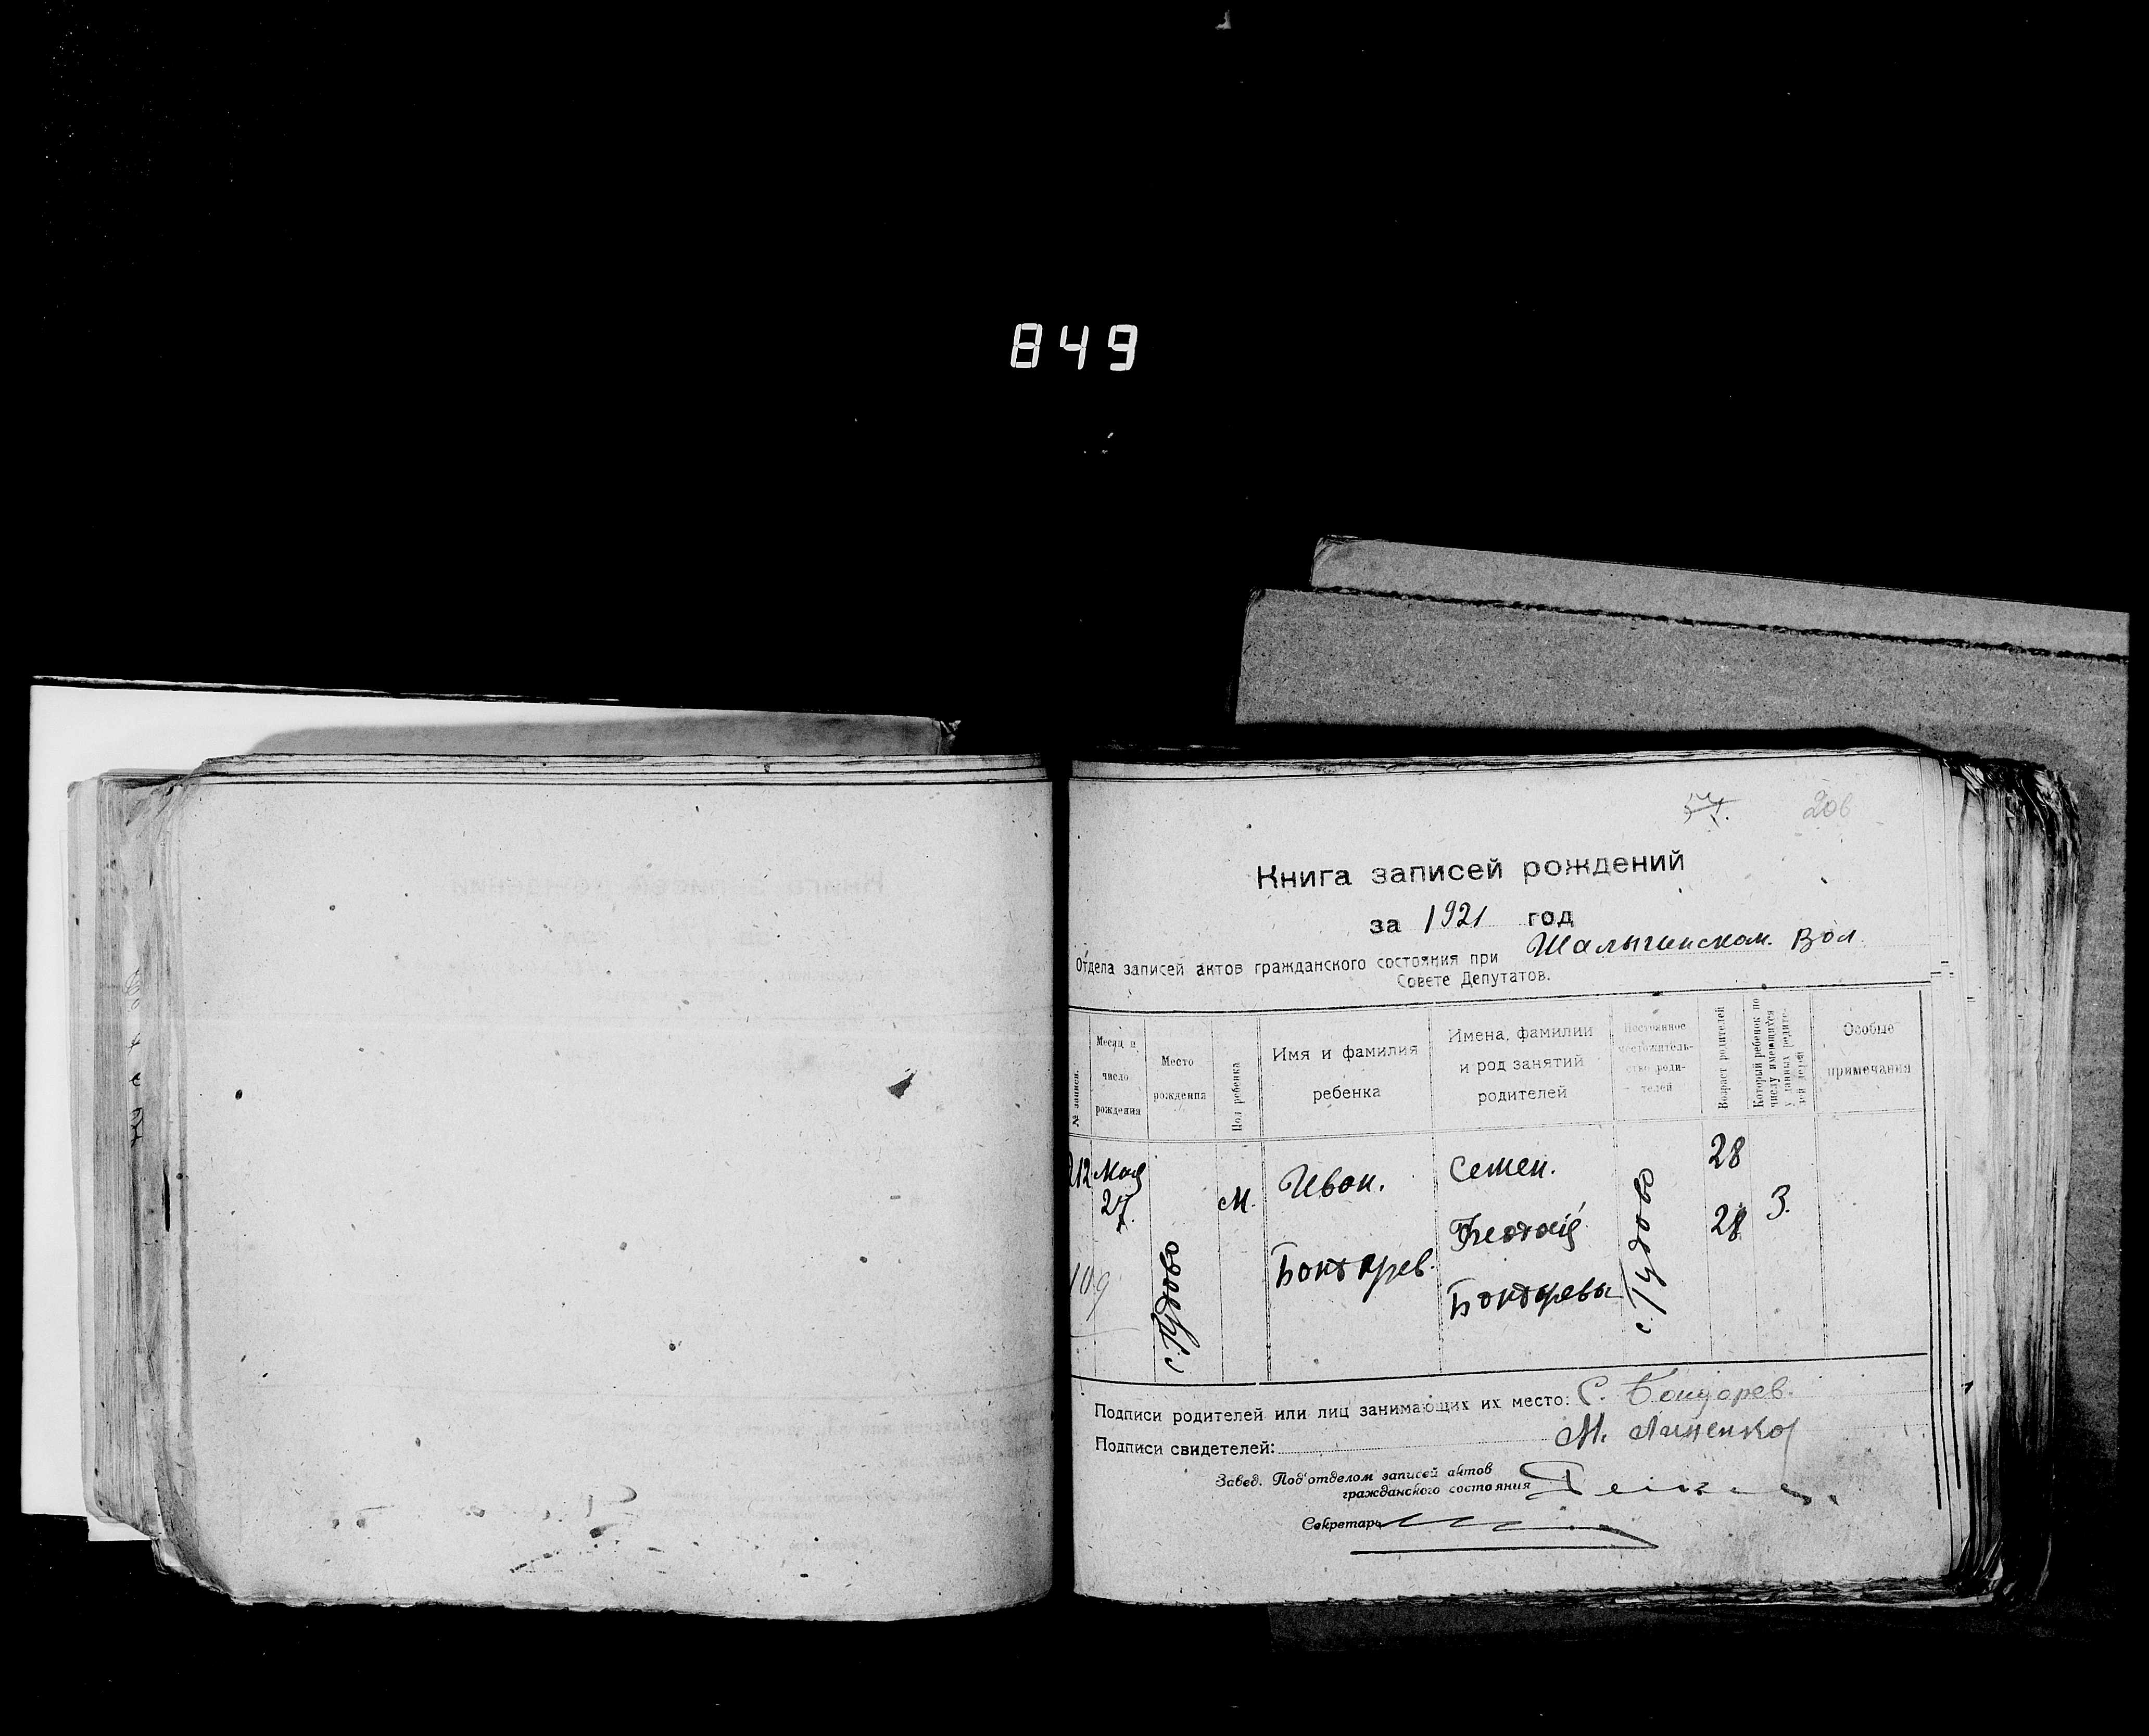 849
57. 206
Книга записей рождений
за 1921 год
Отдела записей актов гражданского состояния при Шалыгинском. Вол.
Совете Депутатов.
№ записи.
Месяц и число рождения
Место рождения
Пол ребенка
Имя и фамилия ребенка
Имена, фамилии и род занятий родителей
Постоянное местожительство родителей
Возраст родителей
Который ребенок по числу имеющихся у данных родителей детей
Особые примечания
212
Мая 27.
с. Гудово
М.
Иван. Бондарев.
Семен.
Бондаревы
с. Гудово
28
28
3.
109
Подписи родителей или лиц занимающих их место: С. Бондарев.
Подписи свидетелей: М.
Завед. Под'отделом записей актов
гражданского состояния
Секретарь